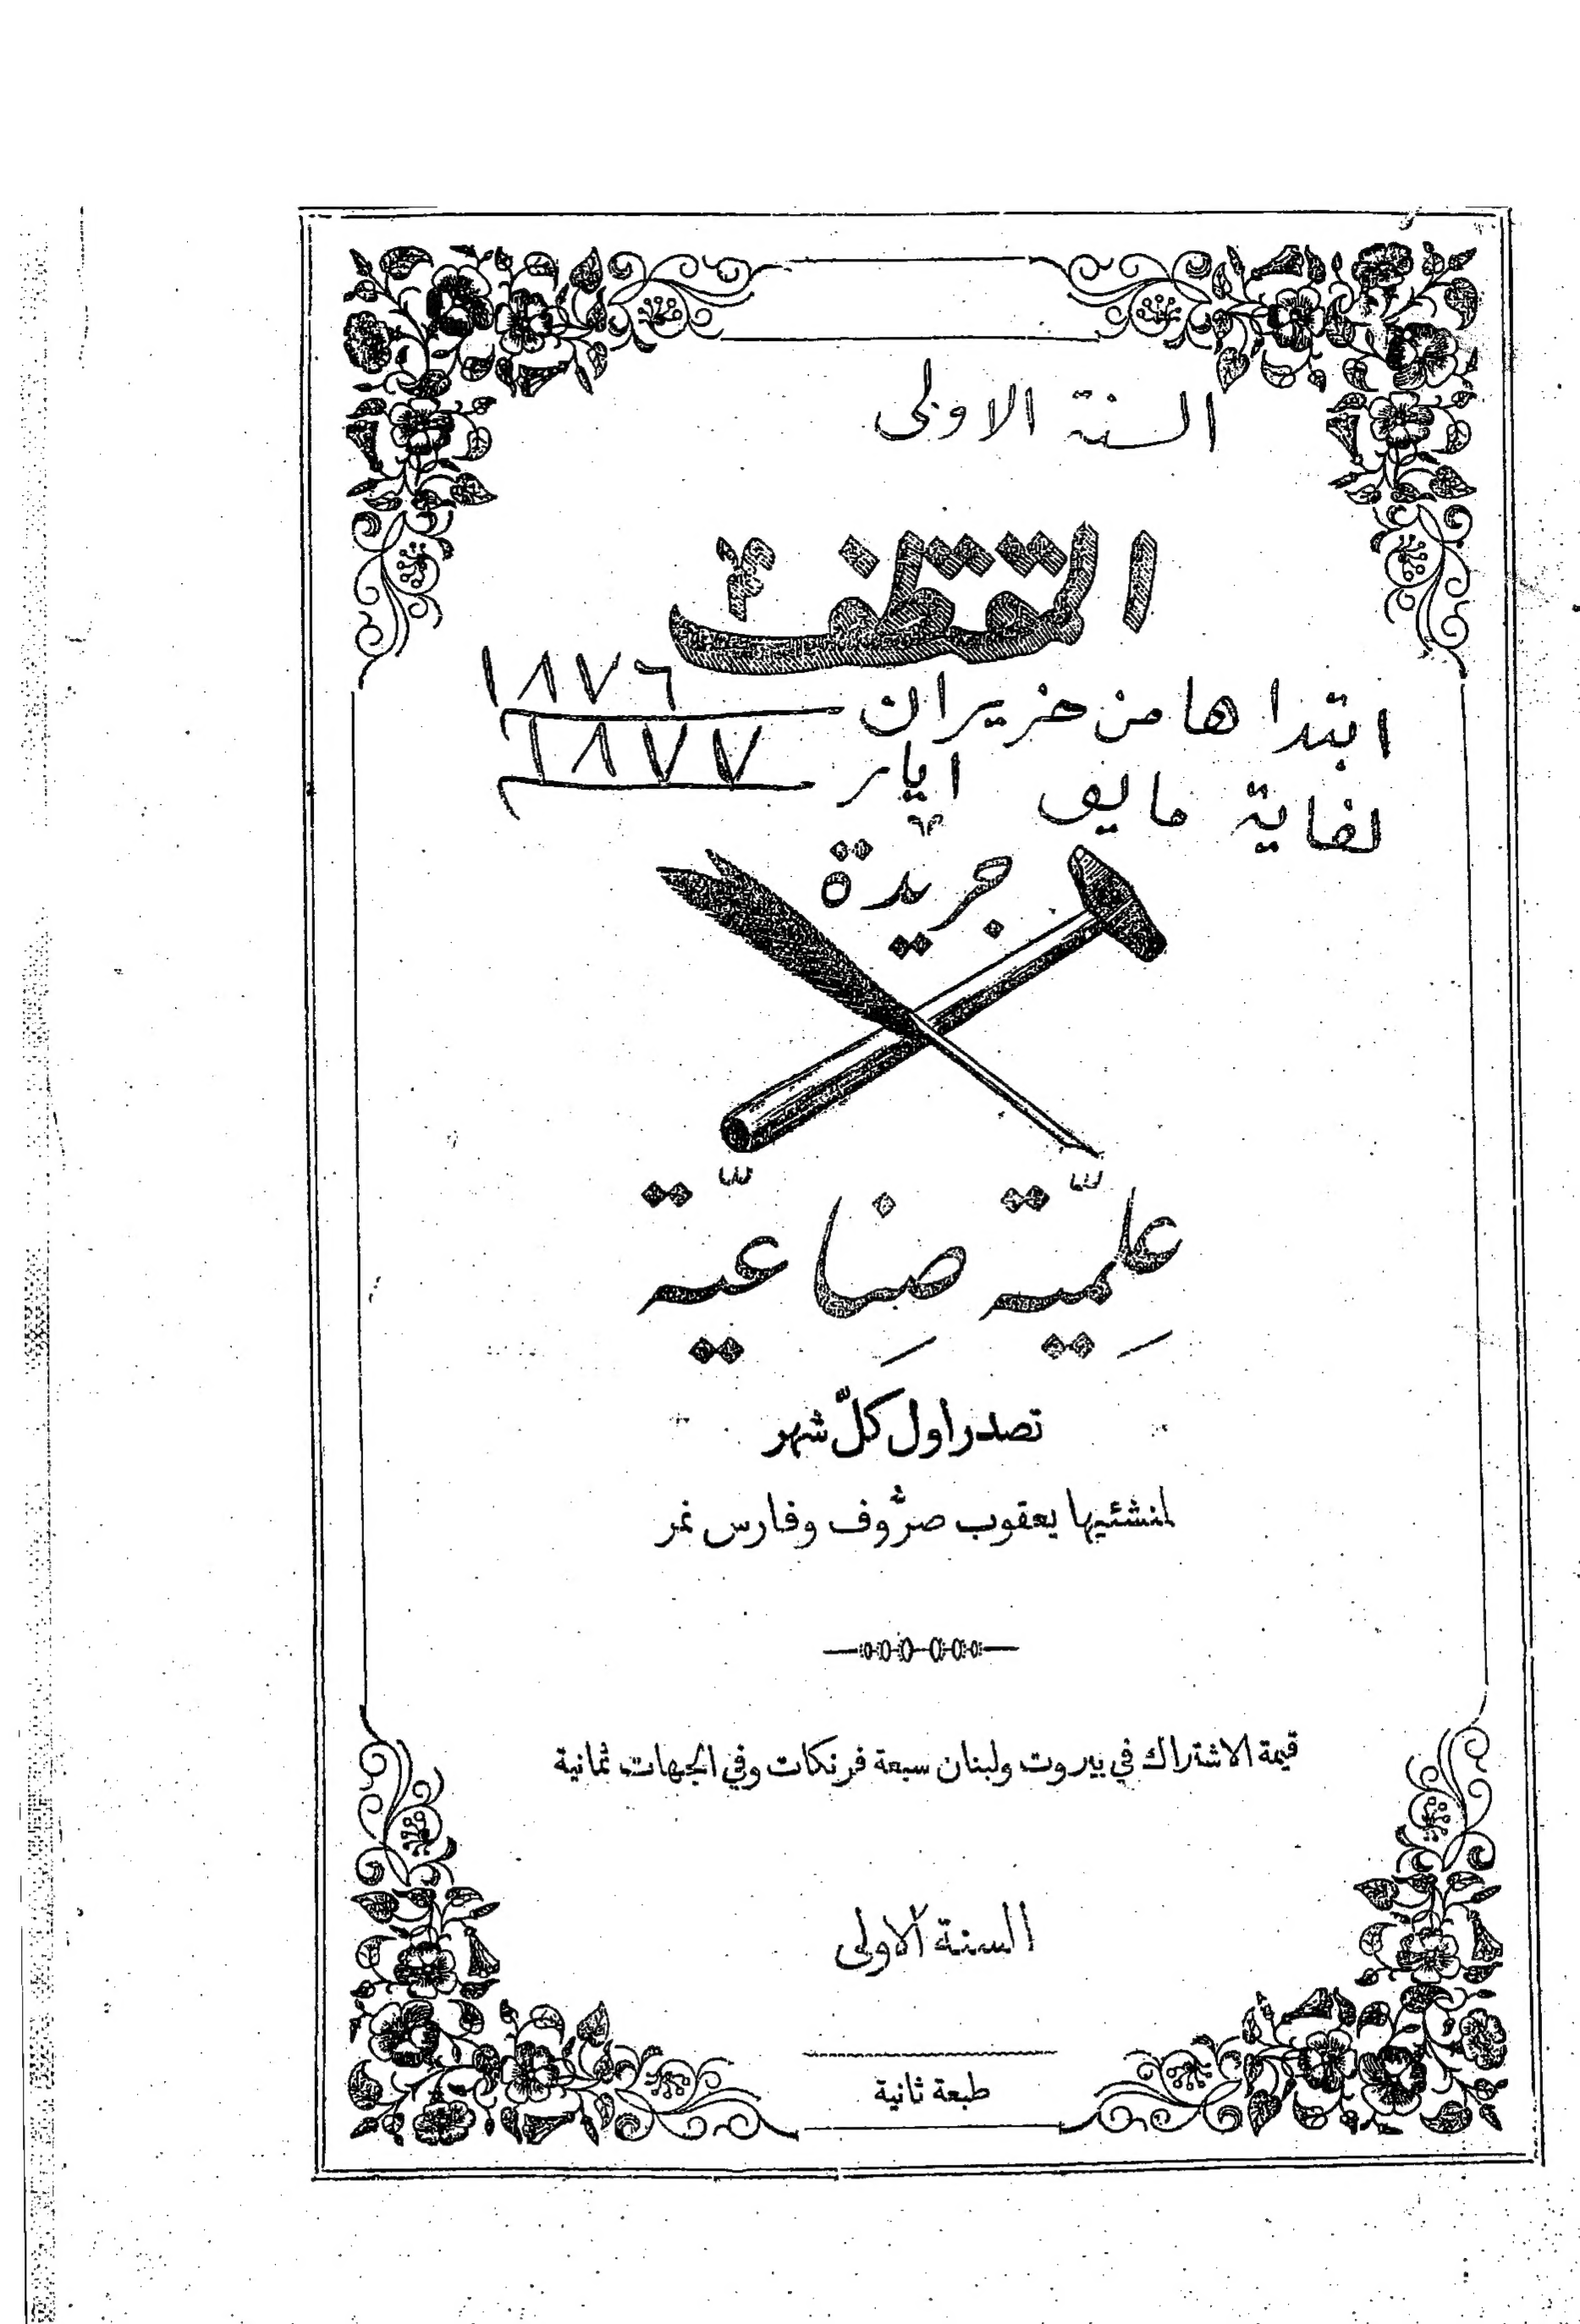 السنة الاولى
المقتطف
ابتدا ها من حزيران ١٨٧٦
لغاية مايو ايار ١٨٧٧
جريدة
عِلميّة صِناعيّة
تصدر اول كلّ شهر
لمنشئيها يعقوب صرُّوف وفارس نمر
قيمة الاشتراك في بيروت ولبنان سبعة فرنكات وفي الجهات ثمانية
السنة الاولى
طبعة ثانية